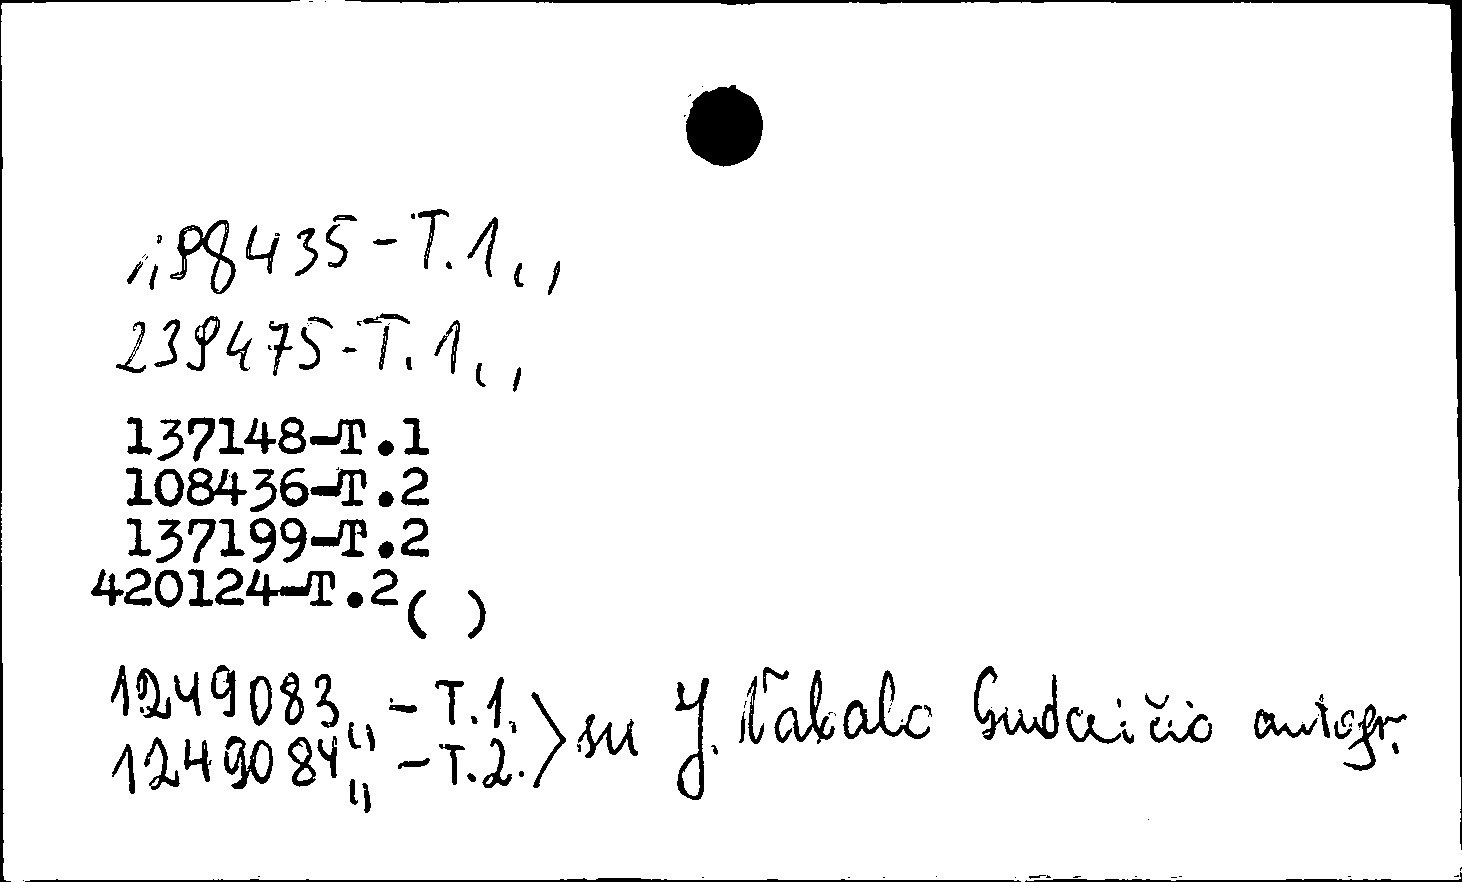 198435-T.1( )
239475-T.1( )
137148-T.1
108436-T.2
137199-T.2
420124-T.2( )
1249083( ) - T.1.
1249084( ) - T.2. > su J. Tabalo Gudaičio autogr.